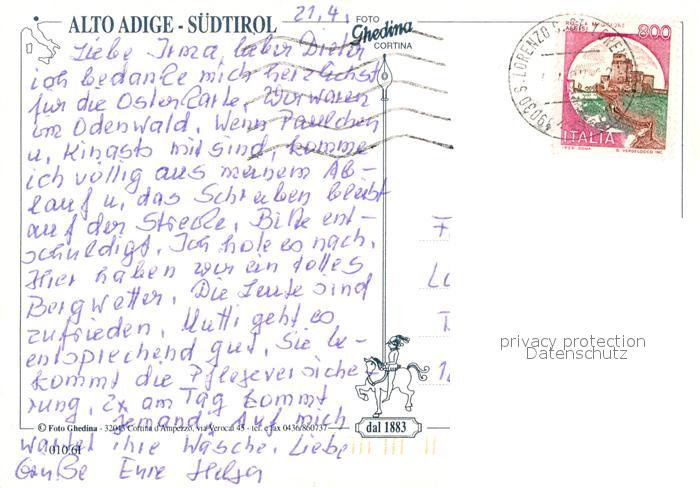 ALTO ADIGE - SÜDTIROL
21.4.
FOTO
Ghedina
CORTINA
Liebe Irma, lieber Dieter
ich bedanke mich herzlichst
für die Osterkarte. Wir waren
im Odenwald. Wenn Paulchen
u. Kingast mit sind, komme
ich völlig aus meinem Ab-
lauf u. das Schreiben bleibt
auf der Strecke. Bitte ent-
schuldigt. Ich hole es nach.
Hier haben wir ein tolles
Bergwetter. Die Leute sind
zufrieden. Mutti geht es
entsprechend gut. Sie be-
kommt die Pflegeversiche-
rung. 2x am Tag kommt
jemand. Auf mich
wartet ihre Wäsche. Liebe
Grüße Eure Helga
© Foto Ghedina - 32043 Cortina d'Ampezzo, via Verocai 45 - tel. e fax 0436/860737
dal 1883
010.61
39030 S. LORENZO
800
ITALIA
I.P.Z.S. ROMA
privacy protection
Datenschutz